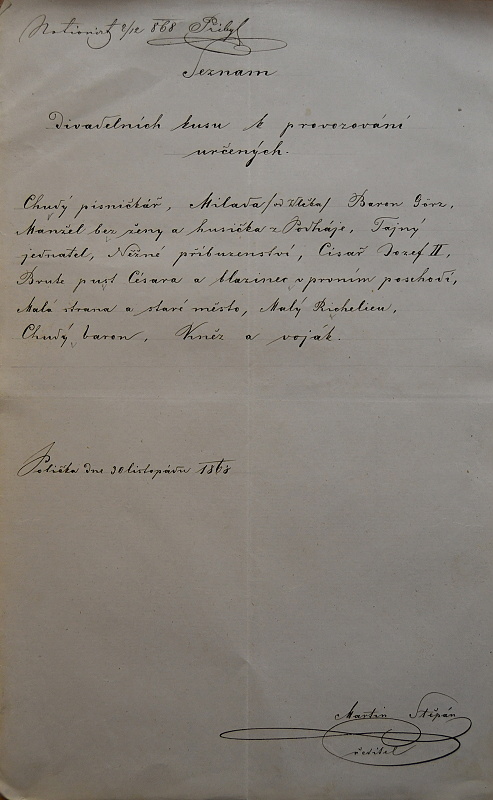 Notionirt 2/12 868 Přibyl
Seznam
Divadelních kusu k provozování
určených.
Chudý písničkář, Milada /od Vlčka/ Baron Görz,
Manžel bez ženy a husička z Podháje, Tajný
jednatel, Něžné příbuzenství, Císař Josef II,
Brute pusť Césara a blazinec v prvním poschodí,
Malá strana a staré město, Malý Richelieu,
Chudý baron, Kněz a voják.
Polička dne 30 listopádu 1868
Martin Stěpán
ředitel